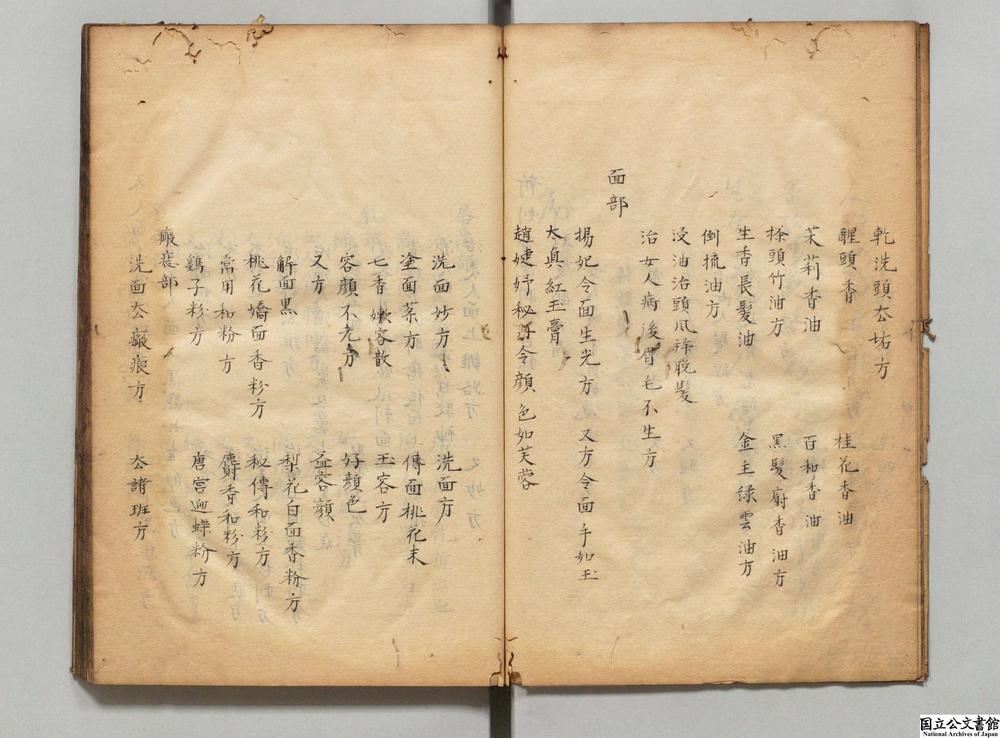 乾洗頭去垢方
醒頭香 桂花香油
茉莉香油 百和香油
搽頭竹油方 黑髮麝香油方
生香長髮油 金主綠雲油方
倒梳油方
浸油治頭風條脫髮
治女人病後眉毛不生方
面部
楊妃令面生光方 又方令面手如玉
太真紅玉膏
趙婕妤秘方令顏色如芙蓉
洗面妙方 洗面方
塗面藥方 傅面桃花末
七香嫩容散 玉容方
容顏不老方 好顏色
又方 益容顏
解面黑 梨花白面香粉方
桃花嬌面香粉方 秘傳和粉方
常用和粉方 麝香和粉方
鷄子粉方 唐宮迎蝶粉方
瘢痣部
洗面去瘢痕方 去諸斑方
国立公文書館
National Archives of Japan